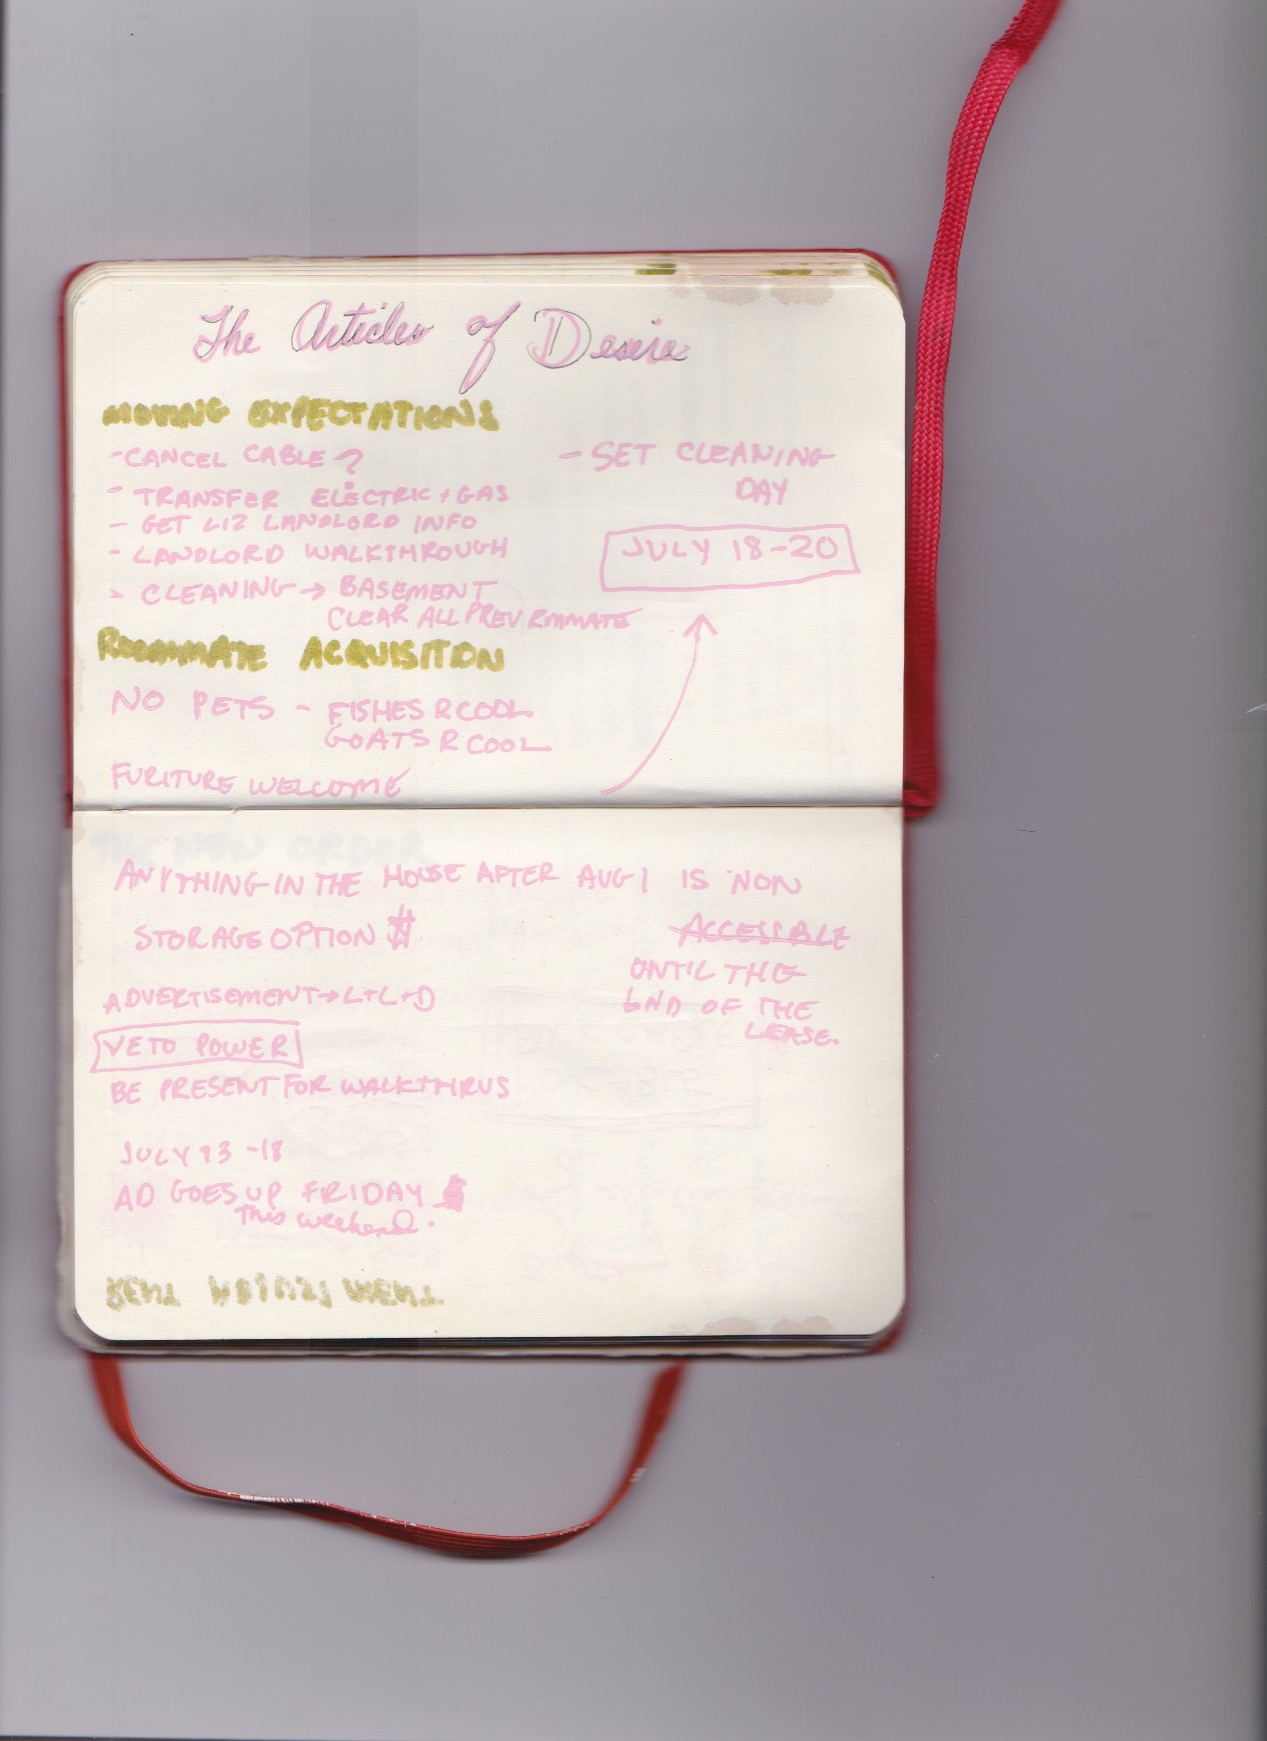 The Articles of Desire
MOVING EXPECTATIONS
- CANCEL CABLE?
- TRANSFER ELECTRIC + GAS
- GET LIZ LANDLORD INFO
- LANDLORD WALKTHROUGH
- CLEANING → BASEMENT
CLEAR ALL PREV RMMATE
- SET CLEANING
DAY
JULY 18-20
ROOMMATE ACQUISITION
NO PETS - FISHES R COOL
GOATS R COOL
FURITURE WELCOME
ANYTHING IN THE HOUSE AFTER AUG 1 IS NON
ACCESSIBLE
UNTIL THE
END OF THE
LEASE.
STORAGE OPTION $
ADVERTISEMENT → L+L+D
VETO POWER
BE PRESENT FOR WALKTHRUS
JULY 13-18
AD GOES UP FRIDAY
this weekend.